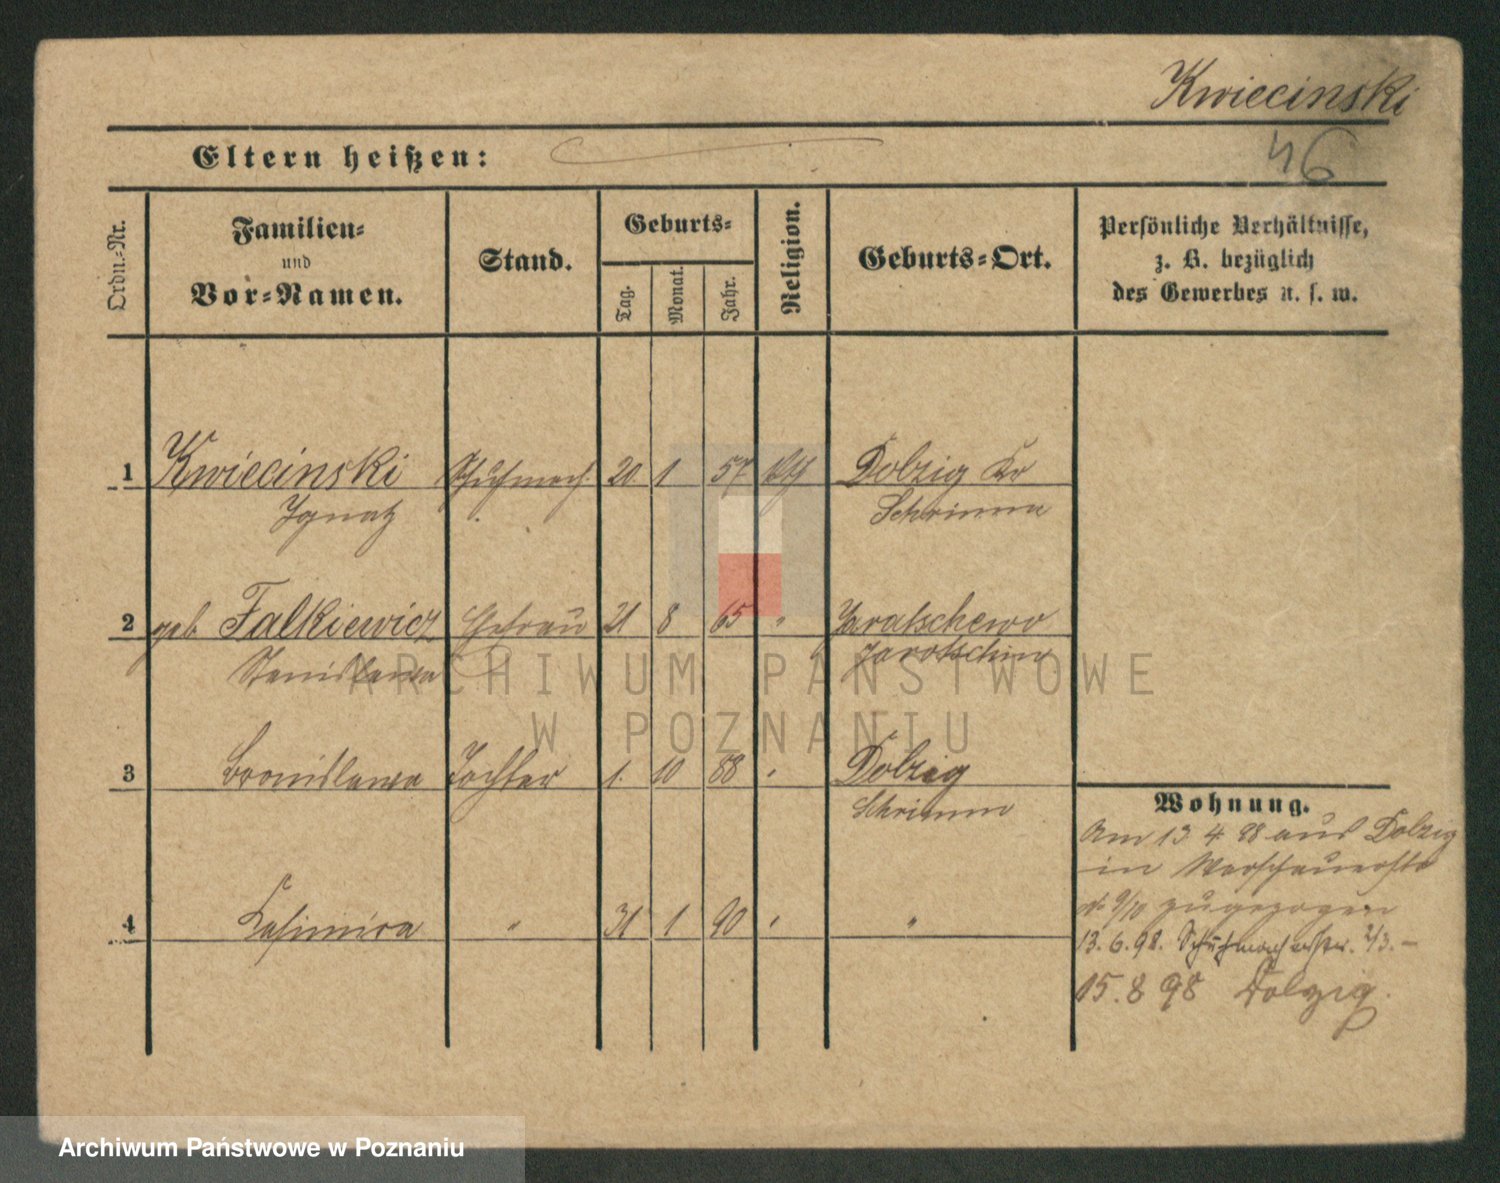 Kwiecinski
46
Eltern heißen:
Ordn.-Nr.
Familien-
und
Vor-Namen.
Stand.
Geburts-
Tag.
Monat.
Jahr.
Religion.
Geburts-Ort.
Persönliche Verhältnisse,
z. B. bezüglich
des Gewerbes u. s. w.
1 Kwiecinski Schuhmach. 20 1 57 kth Dolzig Kr
Ignatz Schrimm
2 geb Falkiewicz Ehefrau 21 8 65 " Jaratschewo
Stanislawa Jarotschin
3 Bronislawa Tochter 1. 10 88 " Dolzig
Schrimm
4 Kasimira " 31 1 90 " "
Wohnung.
Am 13 4. 98 aus Dolzig
in Warschauerstr
No 9/10 zugezogen
13. 6. 98. Schuhmacherstr. 2/3. –
15. 8 98 Dolzig.
ARCHIWUM PAŃSTWOWE
W POZNANIU
Archiwum Państwowe w Poznaniu